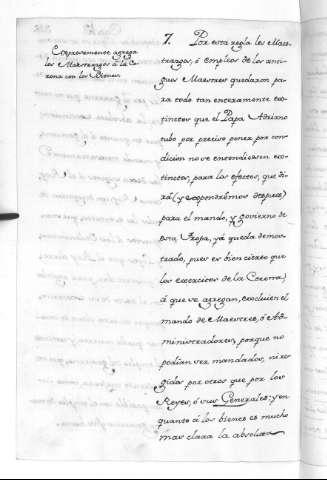 Expresamente agrega
los Maestrazgos à la Co
rona con los Bienes.
7. Por esta regla los Maes-
trazgos, ò empleos de los anti-
guos Maestres quedaron pa-
ra todo tan enteramente ex-
tinctos que el Papa Adriano
tubo por preciso poner por con-
dicion no se entendiesen ex-
tinctos, para los efectos, que di-
rà (y expondrèmos despues)
para el mando, y govierno de
esta Tropa, yà queda demos-
trado, pues es bien cierto que
los exercitos de la Corona,
à que se agregan, excluien el
mando de Maestres, ò Ad-
ministradores, porque no
podian ser mandados, ni re-
gidos por otros que por los
Reyes, ò sus Generales: y en
quanto à los bienes es mucho
mas clara la absoluta